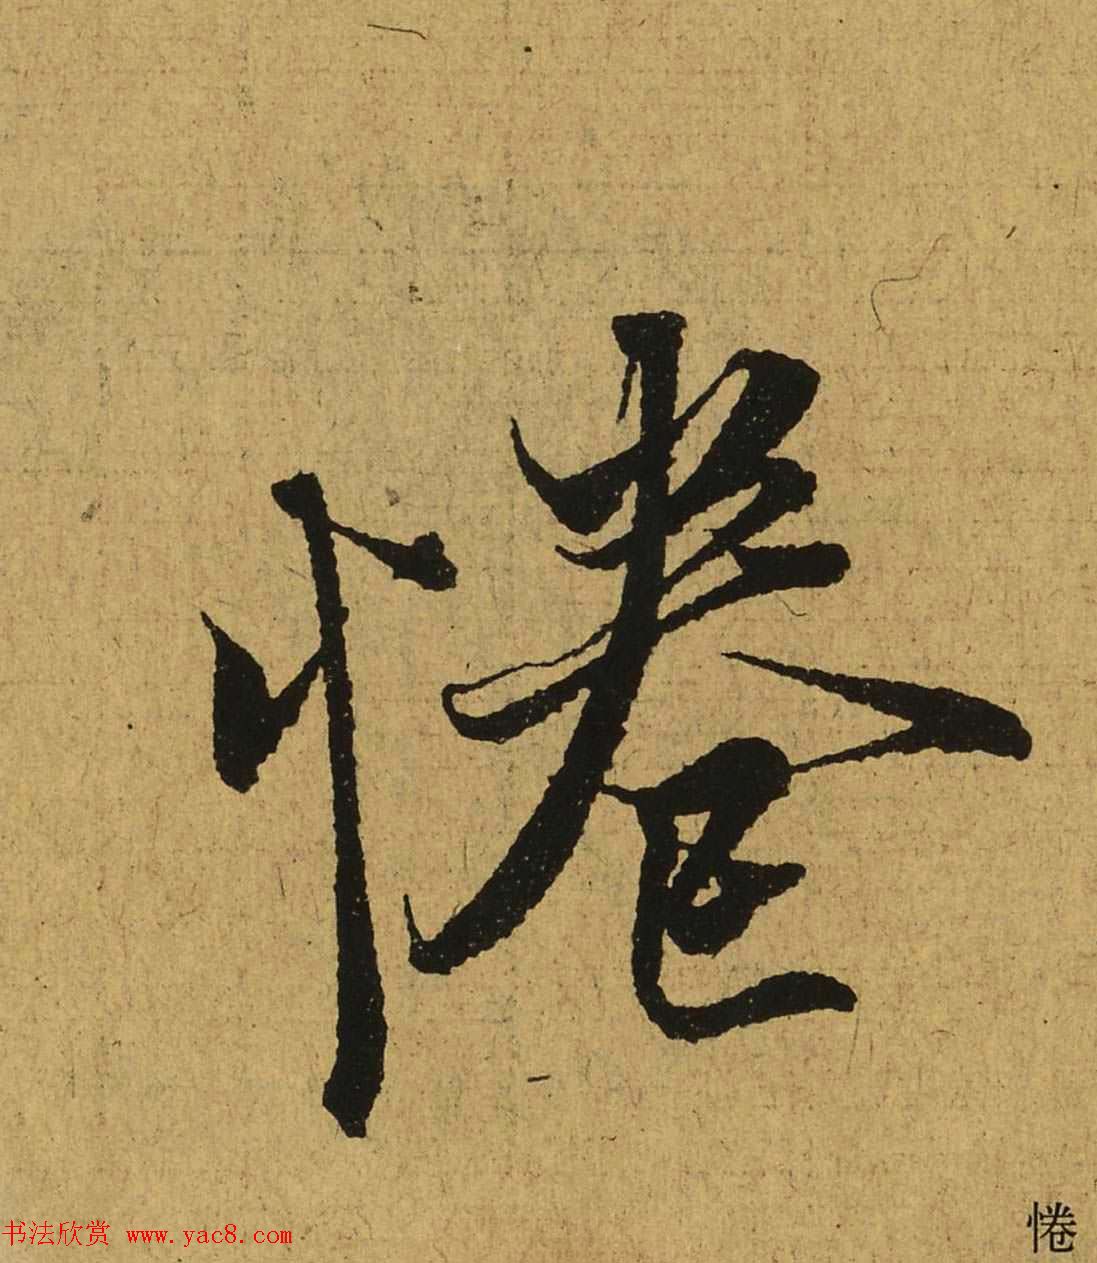 惓
惓
书法欣赏 www.yac8.com